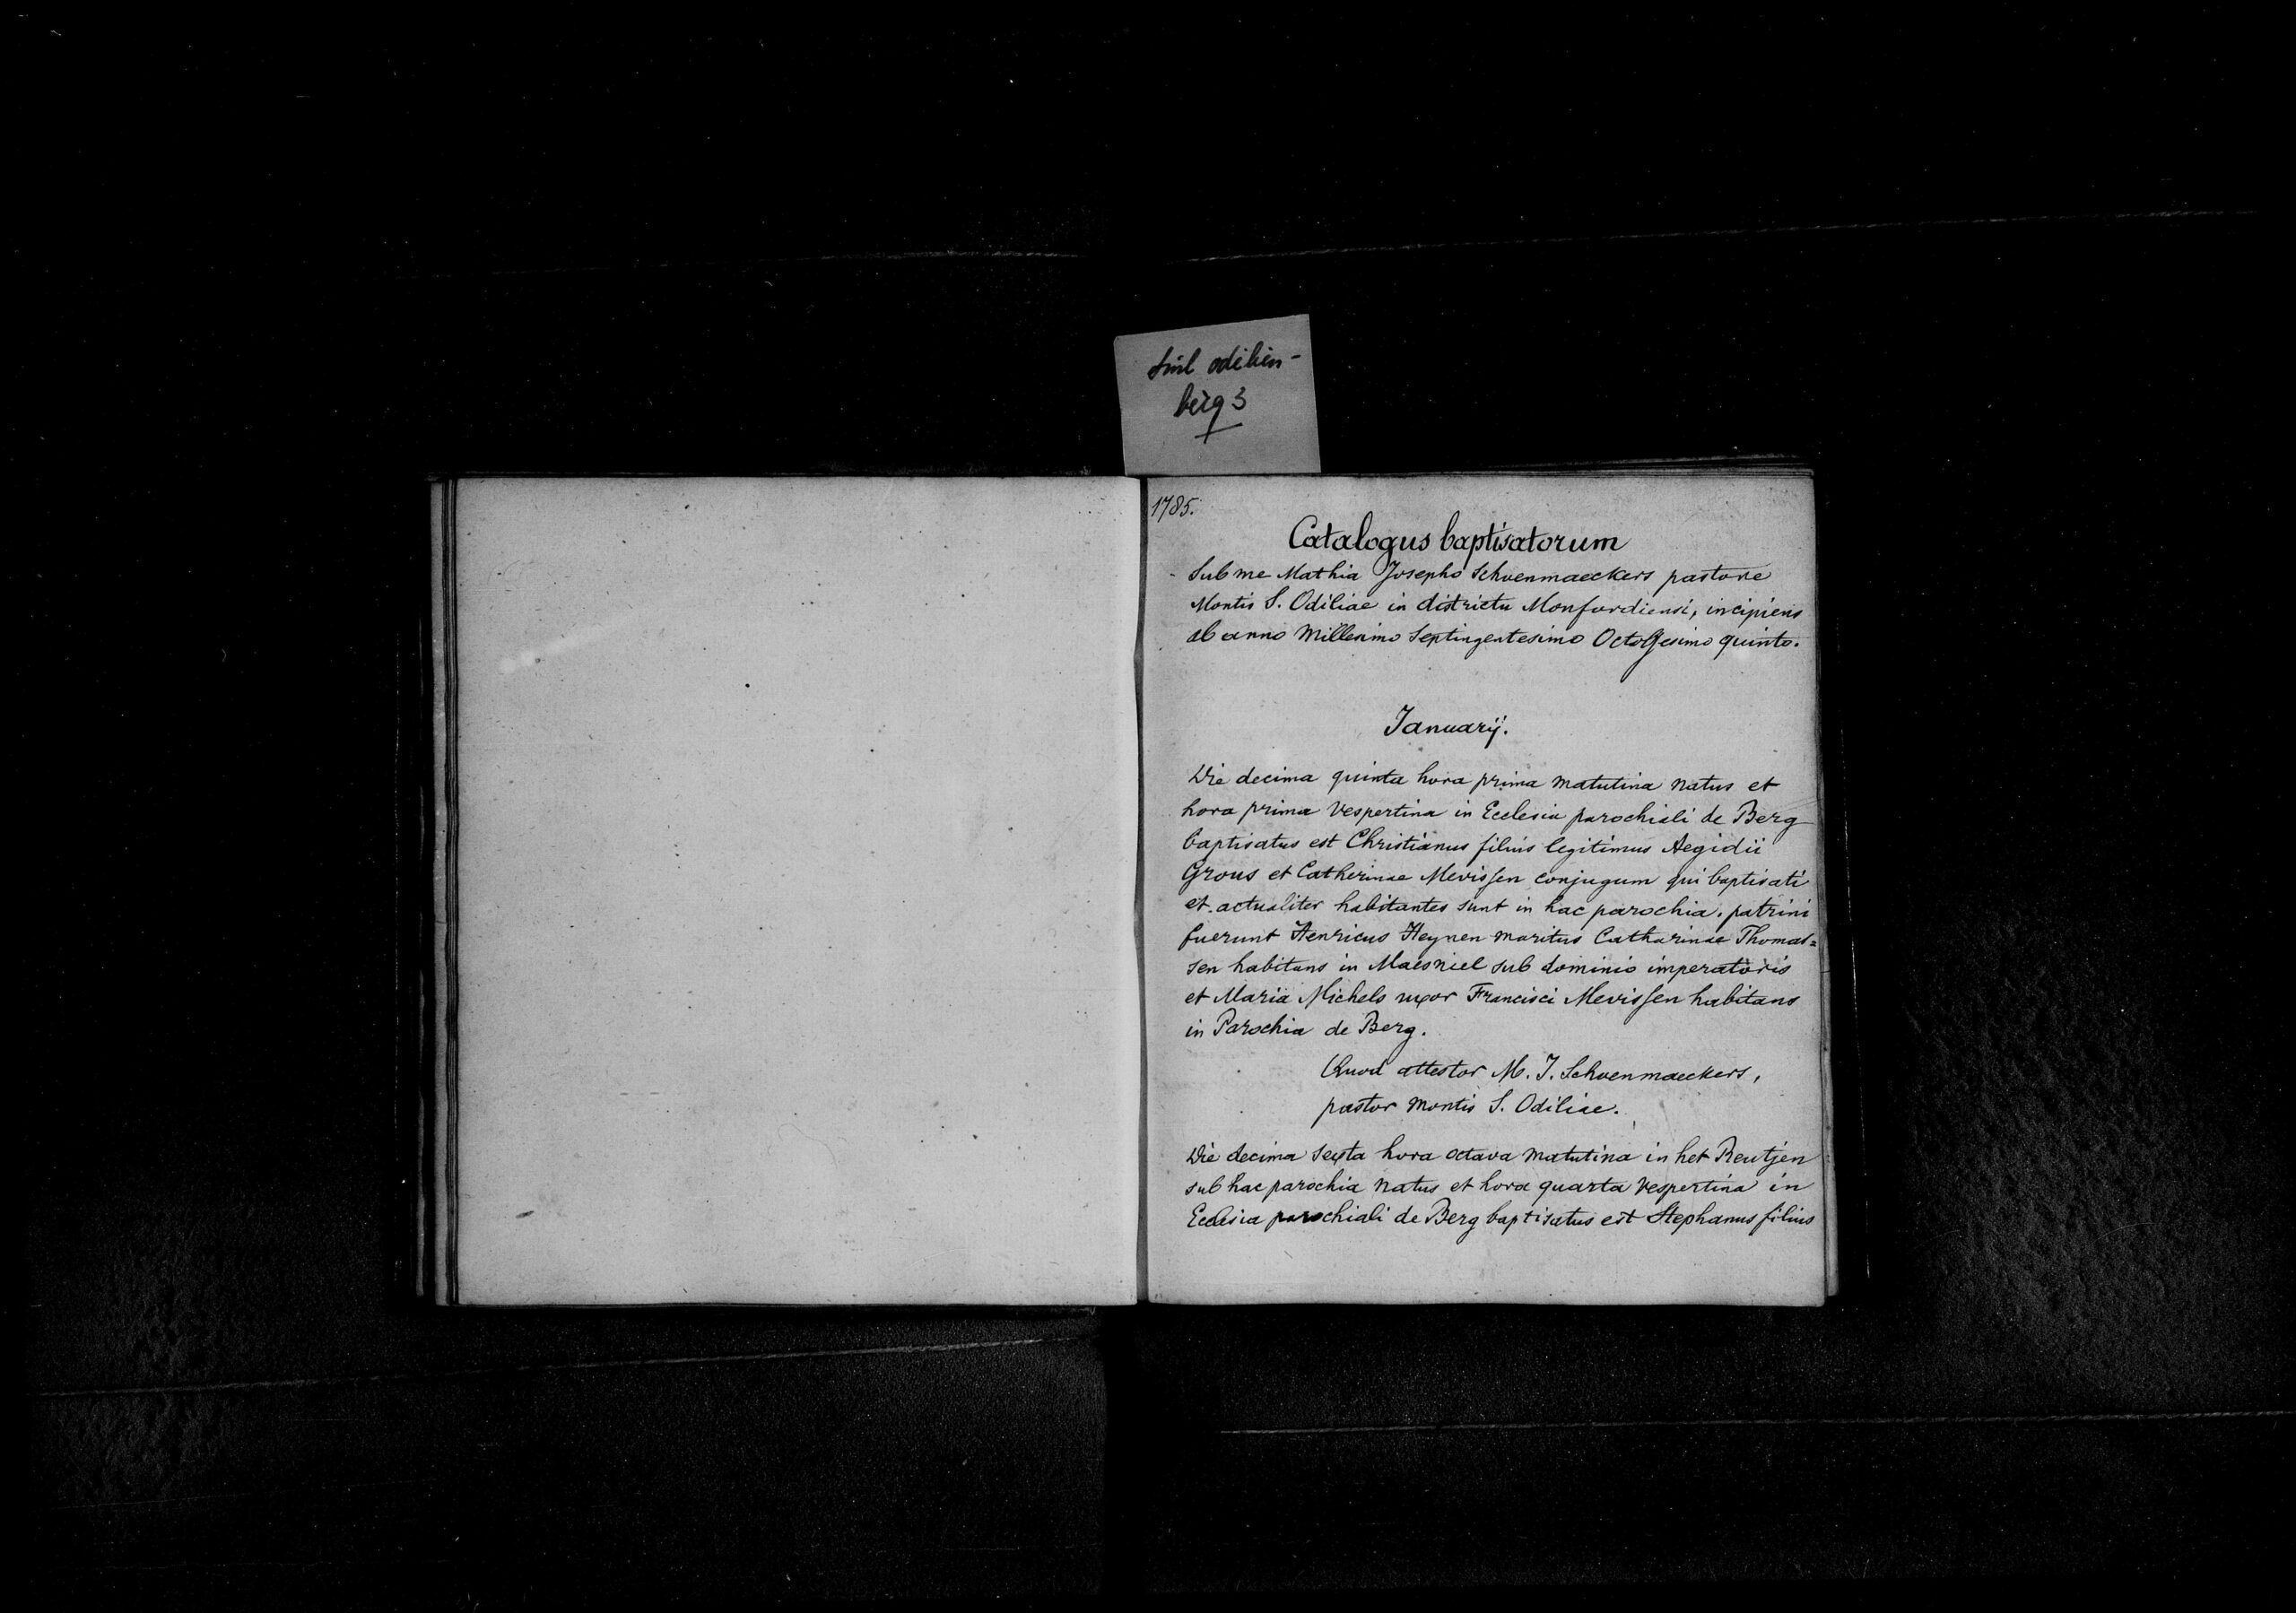 Sint odilien-
berg 3
1785.
Catalogus baptisatorum
Sub me Mathia Josepho Schoenmaeckers pastore
Montis S. Odiliae in districtu Monfordiensi, incipiens
ab anno Millesimo Septingentesimo Octogesimo quinto.
Januarij.
Die decima quinta hora prima matutina natus et
hora prima vespertina in Ecclesia parochiali de Berg
baptisatus est Christianus filius legitimus Aegidii
Grous et Catherinae Mevissen conjugum qui baptisati
et actualiter habitantes sunt in hac parochia. patrini
fuerunt Henricus Heynen maritus Catharinae Thomas=
sen habitans in Maesniel sub dominio imperatoris
et Maria Michels uxor Francisci Mevissen habitans
in Parochia de Berg.
Quod attestor M. J. Schoenmaeckers,
pastor Montis S. Odiliae.
Die decima sexta hora octava matutina in het Reutjen
sub hac parochia natus et hora quarta vespertina in
Ecclesia parochiali de Berg baptisatus est Stephanus filius